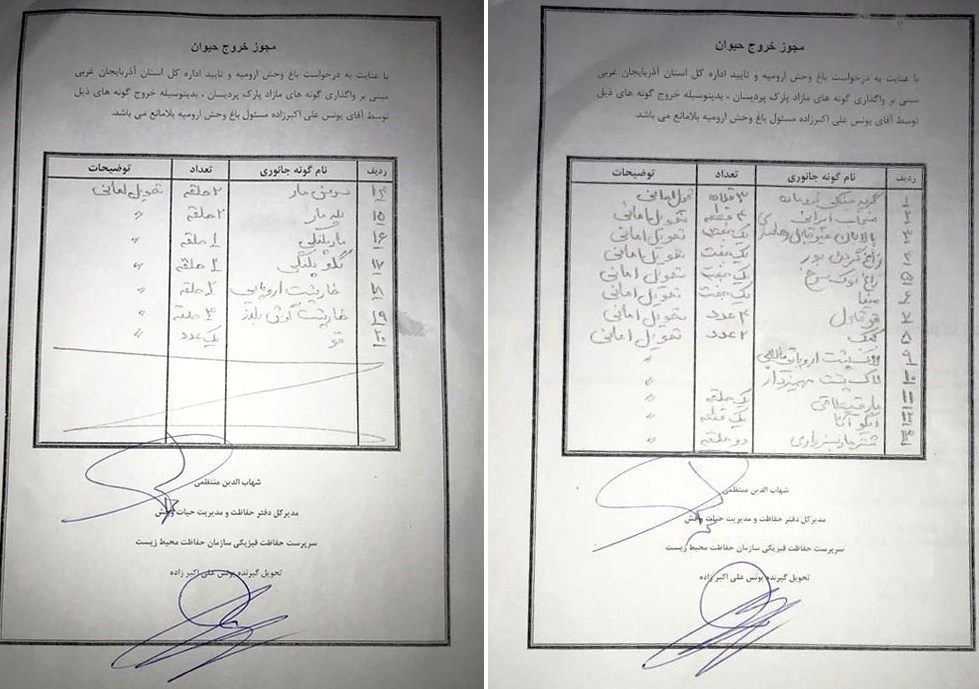 مجوز خروج حیوان
با عنایت به درخواست باغ وحش ارومیه و تایید اداره کل استان آذربایجان غربی
مبنی بر واگذاری گونه های مازاد پارک پردیسان ، بدینوسیله خروج گونه های ذیل
توسط آقای یونس علی اکبرزاده مسئول باغ وحش ارومیه بلامانع می باشد.
ردیف نام گونه جانوری تعداد توضیحات
۱ گربه جنگلی ۳ قلاده تحویل امانی
۲ ایرانی ۴ تحویل امانی
۳ بالابان یک تحویل امانی
۴ زاغ گردن بور یک جفت تحویل امانی
۵ زاغ نوک سرخ یک جفت تحویل امانی
۶ مینا یک جفت تحویل امانی
۷ قرقاول ۴ عدد تحویل امانی
۸ کبک ۲ عدد تحویل امانی
۹ لاک پشت اروپایی "
۱۰ لاک پشت مهمیزدار "
۱۱ مار یک حلقه "
۱۲ ایگوانا یک "
۱۳ شترمار دو حلقه "
شهاب الدین منتظمی
مدیرکل دفتر حفاظت و مدیریت حیات وحش
سرپرست حفاظت فیزیکی سازمان حفاظت محیط زیست
تحویل گیرنده یونس علی اکبر زاده
مجوز خروج حیوان
با عنایت به درخواست باغ وحش ارومیه و تایید اداره کل استان آذربایجان غربی
مبنی بر واگذاری گونه های مازاد پارک پردیسان ، بدینوسیله خروج گونه های ذیل
توسط آقای یونس علی اکبرزاده مسئول باغ وحش ارومیه بلامانع می باشد.
ردیف نام گونه جانوری تعداد توضیحات
۱۴ مار ۲ حلقه تحویل امانی
۱۵ یله مار ۲ حلقه "
۱۶ مار پلنگی ۱ حلقه "
۱۷ پلنگی ۲ حلقه "
۱۸ خارپشت اروپایی ۲ حلقه "
۱۹ خارپشت گوش بلند ۳ حلقه "
۲۰ قو یک عدد "
شهاب الدین منتظمی
مدیرکل دفتر حفاظت و مدیریت حیات وحش
سرپرست حفاظت فیزیکی سازمان حفاظت محیط زیست
تحویل گیرنده یونس علی اکبر زاده